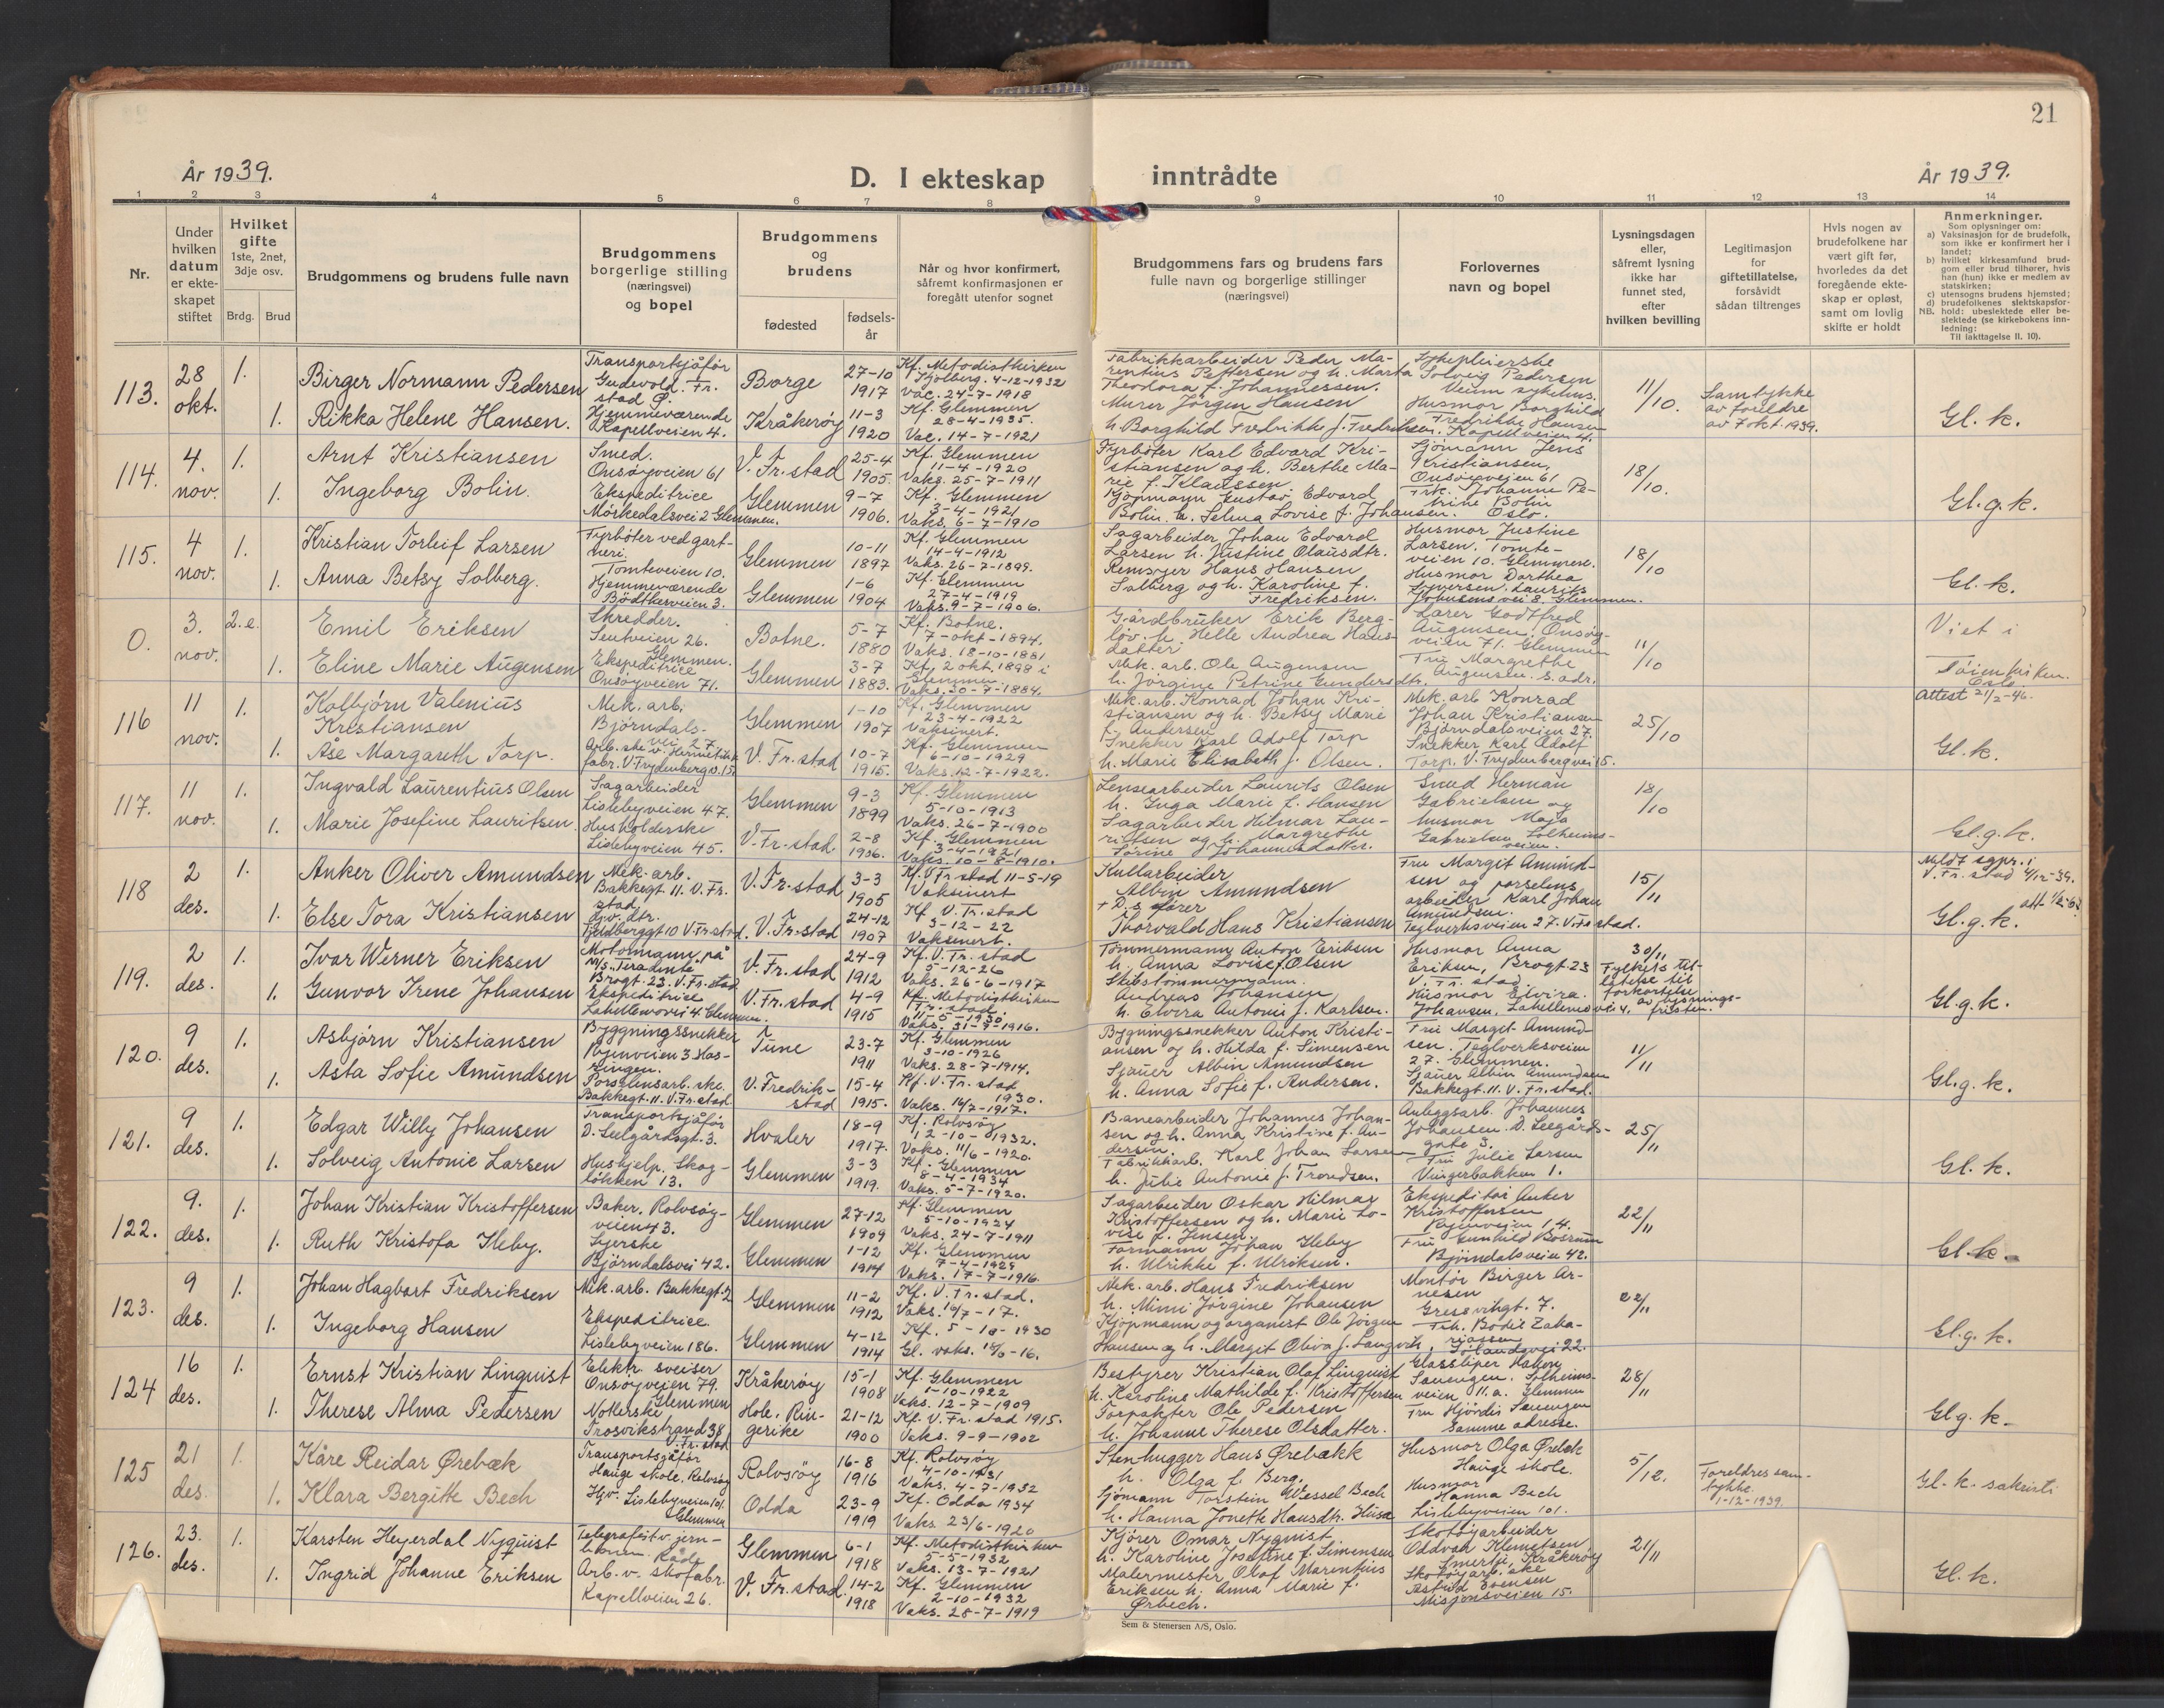 21
År 1939.
D. I ekteskap inntrådte
År 1939.
1 2 3 4 5 6 7 8 9 10 11 12 13 14
Nr.
Under hvilken datum er ekteskapet stiftet
Hvilket gifte
1ste, 2net, 3dje osv.
Brdg. Brud
Brudgommens og brudens fulle navn
Brudgommens borgerlige stilling (næringsvei) og bopel
Brudgommens og brudens
fødested
fødsels-år
Når og hvor konfirmert, såfremt konfirmasjonen er foregått utenfor sognet
Brudgommens fars og brudens fars fulle navn og borgerlige stillinger (næringsvei)
Forlovernes navn og bopel
Lysningsdagen eller, såfremt lysning ikke har funnet sted, efter hvilken bevilling
Legitimasjon for giftetillatelse, forsåvidt sådan tiltrenges
Hvis nogen av brudefolkene har vært gift før, hvorledes da det foregående ekteskap er opløst, samt om lovlig skifte er holdt
Anmerkninger.
Som oplysninger om:
a) Vaksinasjon for de brudefolk, som ikke er konfirmert her i landet;
b) hvilket kirkesamfund brudgom eller brud tilhører, hvis han (hun) ikke er medlem av statskirken;
c) utensogns brudens hjemsted;
d) brudefolkenes slektskapsforhold: ubeslektede eller beslektede (se kirkebokens innledning:
NB. Til iakttagelse II. 10).
113. 28 okt. 1.
Birger Normann Pedersen
Transportsjåfør
Gudevold. Fr.stad Ø.
Borge
27-10 1917
Kf. Metodistkirken
Sjølberg. 4-12-1932
Vac. 24-7-1918
Fabrikkarbeider Peder Ma-
rentius Pettersen og h. Marta
Theodora f. Johannessen.
Sykepleierske
Solveig Pedersen
Veum sykehus.
11/10.
Samtykke
av foreldre
av 7 okt. 1939.
Gl. k.
1.
Rikka Helene Hansen.
Hjemmeværende
Kapellveien 4.
Kråkerøy
11-3 1920
Kf. Glemmen
28-4-1935.
Vac. 14-7-1921
Murer Jörgen Hansen
h. Borghild Fredrikke f. Fredriksen.
Husmor Borghild
Fredrikke Hansen
Kapellveien 4.
114. 4. nov. 1.
Arnt Kristiansen
Smed.
Onsøyveien 61
V. Fr.stad
25-4 1905.
Kf. Glemmen
11-4-1920
Vaks. 25-7-1911
Fyrbøter Karl Edvard Kri-
stiansen og h. Berthe Ma-
rie f. Klaussen
Sjömann Jens
Kristiansen,
Onsøyveien 61
18/10.
Gl. g. k.
1.
Ingeborg Bolin.
Ekspeditrice
Mörkedalsvei 2 Glemmen.
Glemmen
9-7 1906.
Kf. Glemmen
3-4-1921
Vaks. 6-7-1910
Kjöpmann Gustav Edvard
Bolin h. Selma Lovise f. Johansen.
Frk. Johanne Pe-
trine Bolin
Oslo.
115. 4 nov. 1.
Kristian Torleif Larsen
Fyrböter ved gart-
neri.
Tomteveien 10.
Glemmen
10-11 1897
Kf. Glemmen
14-4-1912
Vaks. 26-7-1899.
Sagarbeider Johan Edvard
Larsen h. Justine Olausdtr.
Husmor Justine
Larsen. Tomte-
veien 10. Glemmen.
18/10
Gl. k.
1.
Anna Betsy Solberg.
Hjemmeværende
Bödtkerveien 3.
Glemmen
1-6 1904
Kf. Glemmen
27-4-1919
Vaks. 9-7-1906.
Remsyer Hans Hansen
Solberg og h. Karoline f.
Fredriksen.
Husmor Dorthea
Syversen. Laurits
Johnsens vei 8. Glemmen.
0. 3. nov. 2. e.
Emil Eriksen
Skredder.
Leutveien 26.
Glemmen.
Botne.
5-7 1880
Kf. Botne.
7-okt-1894.
Vaks. 18-10-1881
Gårdbruker Erik Berg-
löv. h. Helle Andrea Hans-
datter
Lærer Godtfred
Augensen. Onsøy-
veien 71. Glemmen
11/10
Viet i
Tøienkirken.
Oslo.
Attest 21/2-46.
1.
Eline Marie Augensen
Ekspeditrice
Onsøyveien 71.
Glemmen
3-7 1883.
Kf. 2 okt. 1898 i
Glemmen.
Vaks. 30-7-1884.
Mek. arb. Ole Augensen
h. Jörgine Petrine Gundersdtr.
Fru Margrethe
Augensen. s. adr.
116 11 nov. 1.
Kolbjørn Valenius
Kristiansen
Mek. arb.
Bjørndals-
vei 27.
Glemmen
1-10 1907
Kf. Glemmen
23-4-1922
Vaksinert.
Mek. arb. Konrad Johan Kri-
stiansen og h. Betsy Marie
f. Andersen
Mek. arb Konrad
Johan Kristiansen
Bjørndalsveien 27.
25/10
Gl. k.
1.
Åse Margareth Torp.
Arb. ske v. Hermetikk
fabr. V. Frydenberg v. 15.
V. Fr. stad
10-7 1915.
Kf. Glemmen
6-10-1929
Vaks. 12-7-1922.
Snekker Karl Adolf Torp
h. Marie Elisabeth f. Olsen.
Snekker Karl Adolf
Torp. V. Frydenbergvei 15.
117. 11 nov. 1.
Ingvald Laurentius Olsen
Sagarbeider
Lislebyveien 47.
Glemmen
9-3 1899
Kf. Glemmen
5-10-1913
Vaks. 26-7-1900
Lensearbeider Laurits Olsen
h. Inga Marie f. Hansen
Smed Herman
Gabrielsen og
18/10
Gl. g. k.
1.
Marie Josefine Lauritsen.
Husholderske
Lislebyveien 45.
V. Fr. stad.
2-8 1906.
Kf. Glemmen
3-4-1921
Vaks. 10-8-1910.
Sagarbeider Hilmar Lau-
ritsen og h. Margrethe
Törine Johannesdatter.
husmor Maja
Gabrielsen Solheims-
veien.
118 2 des. 1.
Anker Oliver Amundsen
Mek. arb.
Bakkegt. 11. V. Fr.
stad
V. Fr. stad
3-3 1905
Kf. V. Fr stad 11-5-19
Vaksinert
Kullarbeider
Albin Amundsen
Fru Margit Amund-
sen og porselens
arbeider Karl Johan
Amundsen.
Teglverksveien 27. V. Fr. stad.
15/11
Meldt sgpr. i
V. Fr. stad 4/12-39.
Gl. g. k.
1.
Else Tora Kristiansen
Hjv. dtr.
Fjeldberggt 10 V. Fr. stad.
V. Fr. stad
24-12 1907
Kf. V. Fr. stad
3-12-22
Vaksinert.
Thorvald Hans Kristiansen
119. 2 des. 1.
Ivar Werner Eriksen
Motormann på
M/S "Teradente"
Brogt. 23. V. Fr. stad
V. Fr. stad
24-9 1912
Kf. V. Fr. stad
5-12-26
Vaks. 26-6-1917
Tömmermann Anton Eriksen
h. Anna Lovise f. Olsen
Husmor Anna
Eriksen, Brogt. 23
V. Fr. stad.
30/11
Fylkets til-
latelse til
forkortelse
av lysnings-
fristen.
Gl. g. k.
1.
Gunvor Irene Johansen
Ekspeditrice
Labellesvei 4 Glemmen.
V. Fr. stad
4-9 1915
Kf. Metodistkirken
Fr. stad.
11-5-1930.
Vaks. 31-7-1916.
Skibstömmermann.
Andreas Johansen
h. Elvira Antonie f. Karlsen.
Husmor Elvira
Johansen. Labellesvei 4.
120. 9 des. 1.
Asbjørn Kristiansen
Byggningssnekker
Ryenveien 3. Has-
lingen.
Tune
23-7 1911
Kf. Glemmen
3-10-1926
Vaks. 28-7-1914.
Bygningssnekker Anton Kristi-
ansen og h. Hilda f. Simensen
Fru Margit Amund-
sen. Teglverksveien
27. Glemmen.
11/11
Gl. g. k.
1.
Asta Sofie Amundsen
Porselensarb. ske.
Bakkegt. 11. V. Fr. stad.
V. Fredrik-
stad
15-4 1915.
Kf. V. Fr. stad
1930.
Vaks. 14/7-1917.
Sjauer Albin Amundsen
h. Anna Sofie f. Andersen.
Sjauer Albin Amundsen
Bakkegt. 11. V. Fr. stad.
121. 9 des. 1.
Edgar Willy Johansen
Transportsjåfør
D. Leegårdsgt. 3.
Hvaler
18-9 1917.
Kf. Rolvsøy
12-10-1932.
Vaks. 11/6-1920.
Banearbeider Johannes Johan-
sen og h. Anna Kristine f. An-
dersen.
Anleggsarb. Johannes
Johansen. D. Leegårds-
gate 3.
25/11
Gl. k.
1.
Solveig Antonie Larsen
Hushjelp. Skog-
løkken 13.
Glemmen
3-3 1919.
Kf. Glemmen
8-4-1934
Vaks. 5-7-1920.
Fabrikkarb. Karl Johan Larsen
h. Julie Antonie f. Trondsen.
Fru Julie Larsen
Vingerbakken 1.
122. 9. des. 1.
Johan Kristian Kristoffersen
Baker. Rolvsøy-
veien 43.
Glemmen
27-12 1909
Kf. Glemmen
5-10-1924
Vaks. 24-7-1911
Sagarbeider Oskar Hilmar
Kristoffersen og h. Marie Lo-
vise f. Jensen.
Ekspeditør Anker
Kristoffersen
Ryenveien 14.
22/11
Gl. k.
1.
Ruth Kristofa Heby.
Syerske
Björndalsvei 42.
Glemmen
1-12 1914
Kf. Glemmen
7-4-1929
Vaks. 17-7-1916.
Formann Johan Heby
h. Ulrikke f. Ulriksen.
Fru Gunhild Bosrum
Björndalsveien 42.
123. 9 des. 1.
Johan Hagbart Fredriksen
Mek. arb. Bakkegt. 2
Glemmen
11-2 1912
Kf. V. Fr. stad.
Vaks. 14/7-17.
Mek. arb. Hans Fredriksen
h. Mimi Jörgine Johansen
Montör Birger Ar-
nesen
Gressvikgt. 7.
22/11
Gl. g. k.
1.
Ingeborg Hansen
Ekspeditrice
Lislebyveien 186.
Glemmen
4-12 1914
Kf. 5-10-1930
Gl. vaks. 18/6-16.
Kjöpmann og organist Ole Jörgen
Hansen og h. Margit Oliva f. Langvik.
Frk. Bodil Zaka-
riassen
22.
124 16 des. 1.
Ernst Kristian Linquist
Elektr. sveiser
Onsøyveien 79.
Glemmen
Kråkerøy
15-1 1908
Kf. Glemmen
1-10-1922
Vaks. 12-7-1909
Bestyrer Kristian Olaf Linquist
h. Karoline Mathilde f. Kristoffersen
Glassliper Håkon
Sauengen. Solheims-
veien 11. a. Glemmen
28/11
Gl g. k.
1.
Therese Alma Pedersen
Noterske
Trosvikstrand 38
V. Fr. stad
Hole. Rin-
gerike
21-12 1900
Kf. V. Fr. stad 1915.
Vaks. 9-9-1902
Forpakter Ole Pedersen
h. Johanne Therese Olsdatter.
Fru Hjördis Sauengen
Samme adresse.
125 21 des. 1.
Kåre Reidar Ørebæk
Transportsjåfør
Hauge skole. Rolvsøy
Rolvsøy
16-8 1916
Kf. Rolvsøy
4-10-1931
Vaks. 4-7-1932
Stenhugger Hans Ørebækk
h. Olga f. Berg.
Husmor Olga Örebæk
Hauge skole.
5/12.
Foreldres sam-
tykke.
1-12-1939.
Gl. k. sakristi
1.
Klara Bergitte Bech
Hjv. Lislebyveien 101.
Glemmen
Odda
23-9 1919
Kf. Odda 1934
Vaks. 23/6-1920
Sjömann Torstein Wessel Bech
h. Hanna Jonette Hansdtr. Huså
Husmor
Hanna Bech
Lislebyveien 101.
126. 23. des. 1.
Karsten Heyerdal Nyquist
Telegrafist v. jern-
banen. Råde
Glemmen
6-1 1918
Kf. Metodistkirken
5-5-1932
Vaks. 13-7-1921
Kjører Omar Nyquist
h. Karoline Josefine f. Simensen
Skotøyarbeider
Oddvar Klemetsen
Smertu, Kråkerøy
21/11
Gl. k.
1.
Ingrid Johanne Eriksen
Arb. v. skofabr.
Kapellveien 26.
V. Fr. stad
14-2 1918
Kf. Glemmen
2-10-1932
Vaks. 28-7-1919
Malermester Olaf Marentius
Eriksen h. Anna Marie f.
Ørbech.
Skotøyarb. ske
Astrid Evensen
Misjonsveien 15.
Sem & Stenersen A/S, Oslo.